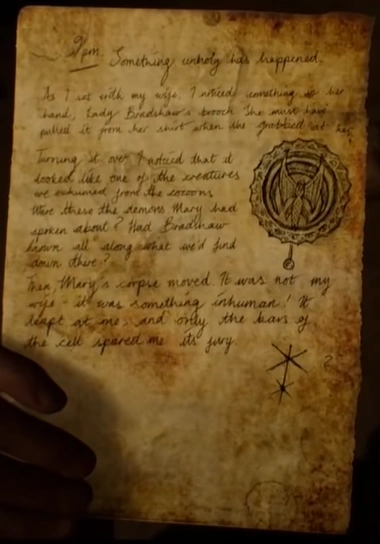 9pm. Something unholy has happened.
As I sat with my wife, I noticed something in her
hand, Lady Bradshaw's brooch. She must have
pulled it from her shirt when she grabbed at her
Turning it over I noticed that it
looked like one of the creatures
we exhumed from the cocoons
Were these the demons Mary had
spoken about? Had Bradshaw
known all along what we'd find
down there?
Then Mary's corpse moved. It was not my
wife - it was something inhuman! It
leapt at me, and only the bars of
the cell spared me its fury.